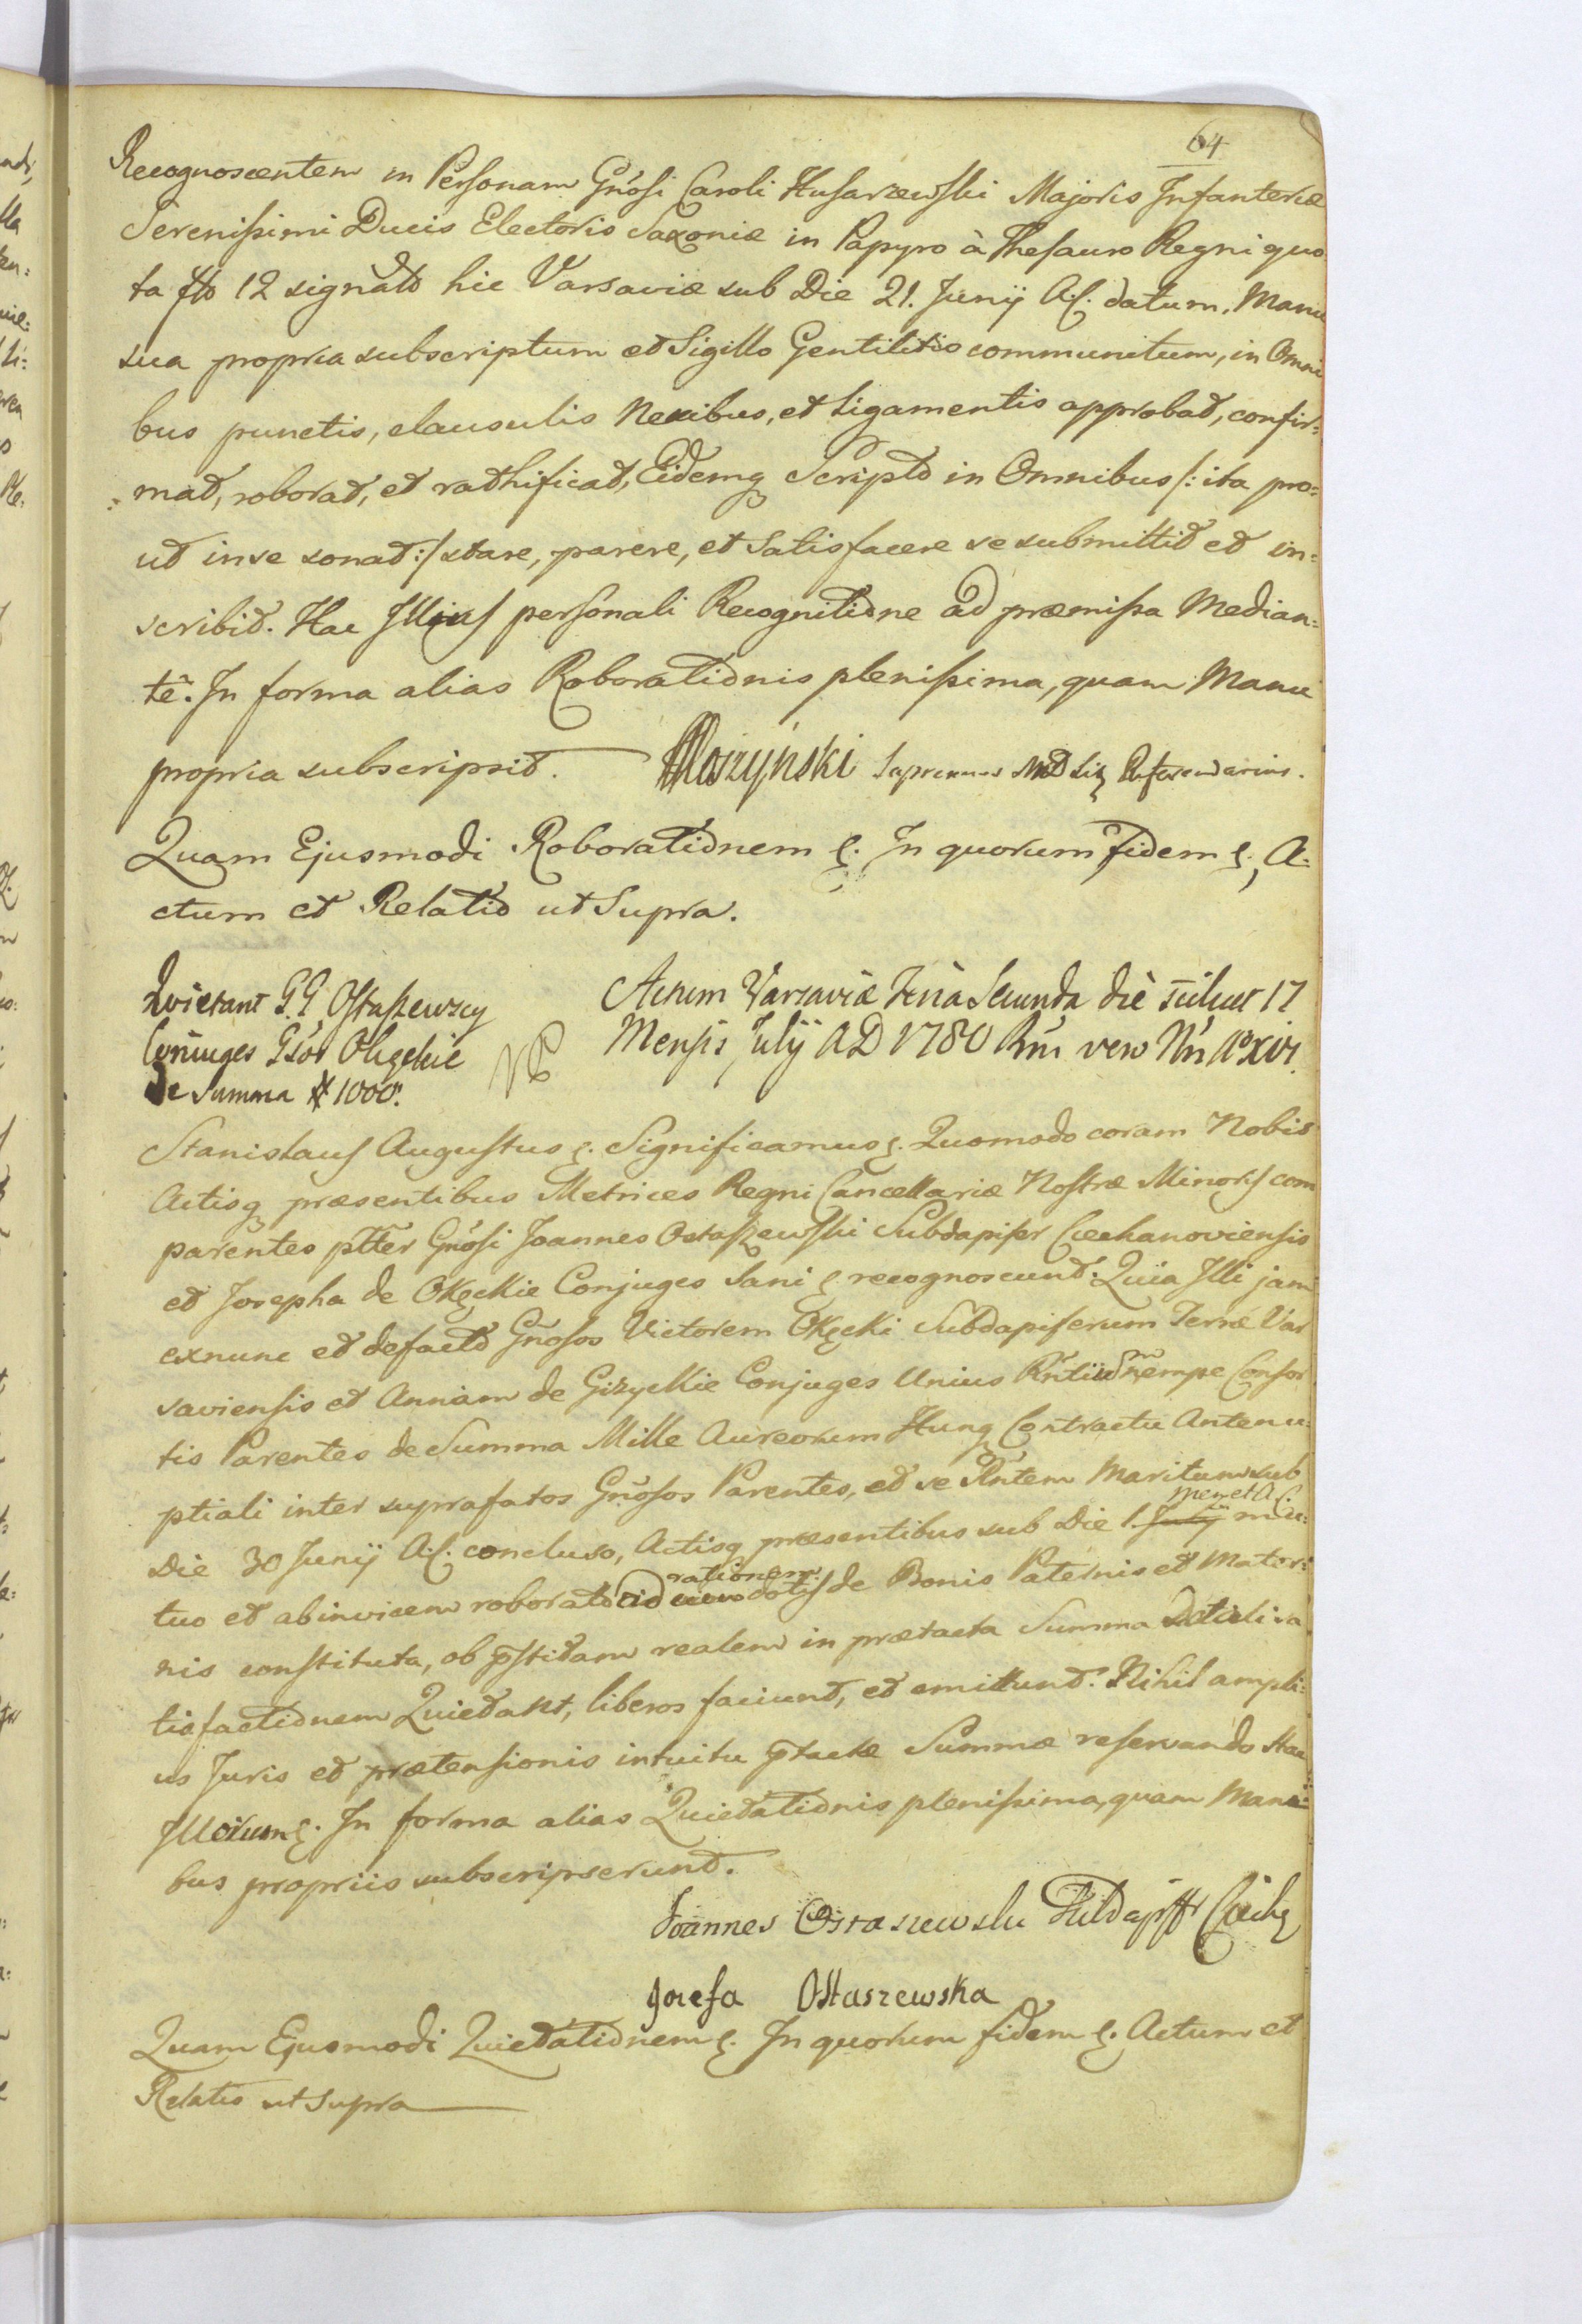 64
Recognoscentem in Personam Gñosi Caroli Husarzewski Majoris Infanteriæ
Serenissimi Ducis Electoris Saxoniæ in Papyro à Thesauro Regni quo
ta fto 12 signato hic Varsaviæ sub Die 21. Junij A.C. datum, Manu
sua propria subscriptum et Sigillo Gentilitio communitum, in Omni
bus punctis, clausulis Nexibus, et Ligamentis approbat, confir=
=mat, roborat, et rathificat, Eidemq Scripto in Omnibus /: ita pro=
ut in se sonat :/ stare, parere, et Satisfacere se submittit et in=
scribit. Hac Illius personali Recognitione ad præmissa Median=
te. In forma alias Roborationis plenissima, quam Manu
propria subscripsit. Moszyński Supremus MD Lit Referendarius.
Quam Ejusmodi Roborationem &. In quorum fidem &, A=
ctum et Relatio ut Supra.
Quietant G.G Ostaszewscy
Coniuges Gsos Okęckie
de Summa # 1000.
Actum Varsaviæ Feria Secunda die scilicet 17
Mensis Julij AD 1780 Rni vero Nri Ao XVI.
Stanislaus Augustus &. Significamus &. Quomodo coram Nobis
Actisq præsentibus Metrices Regni Cancellariæ Nostræ Minoris com
parentes ptter Gñosi Joannes Ostaszewski Subdapifer Ciechanoviensis
et Josepha de Okęckie Conjuges Sani & recognoscunt. Quia Illi jam
exnunc et defacto Gñosos Victorem Okęcki Subdapiferum Terræ Var
saviensis et Annam de Gizyckie Conjuges Unius Rñtium nempe Consor
tis Parentes de Summa Mille Aureorum Hung Contractu Antenu=
ptiali inter suprafatos Gñosos Parentes, et se Rñtem Maritum sub
Die 30 Junij A.C. concluso, Actisq præsentibus sub Die 1. Julij men et A.C. mu=
tuo et abinvicem roborato ad rationem dotis de Bonis Paternis et Mater=
nis constituta, ob p̄stitam realem in prætacta Summa Dotali sa
tisfactionem Quietant, liberos faciunt, et emittunt. Nihil ampli=
us Juris et prætensionis intuitu p̄tactæ Summæ reservando Hac
Illorum &. In forma alias Quietationis plenissima, quam Mani=
bus propriis subscripserunt.
Joannes Ostaszewski Subdapffr Ciech
Jozefa Ostaszewska
Quam Ejusmodi Quietationem &. In quorum fidem &. Actum et
Relatio ut Supra